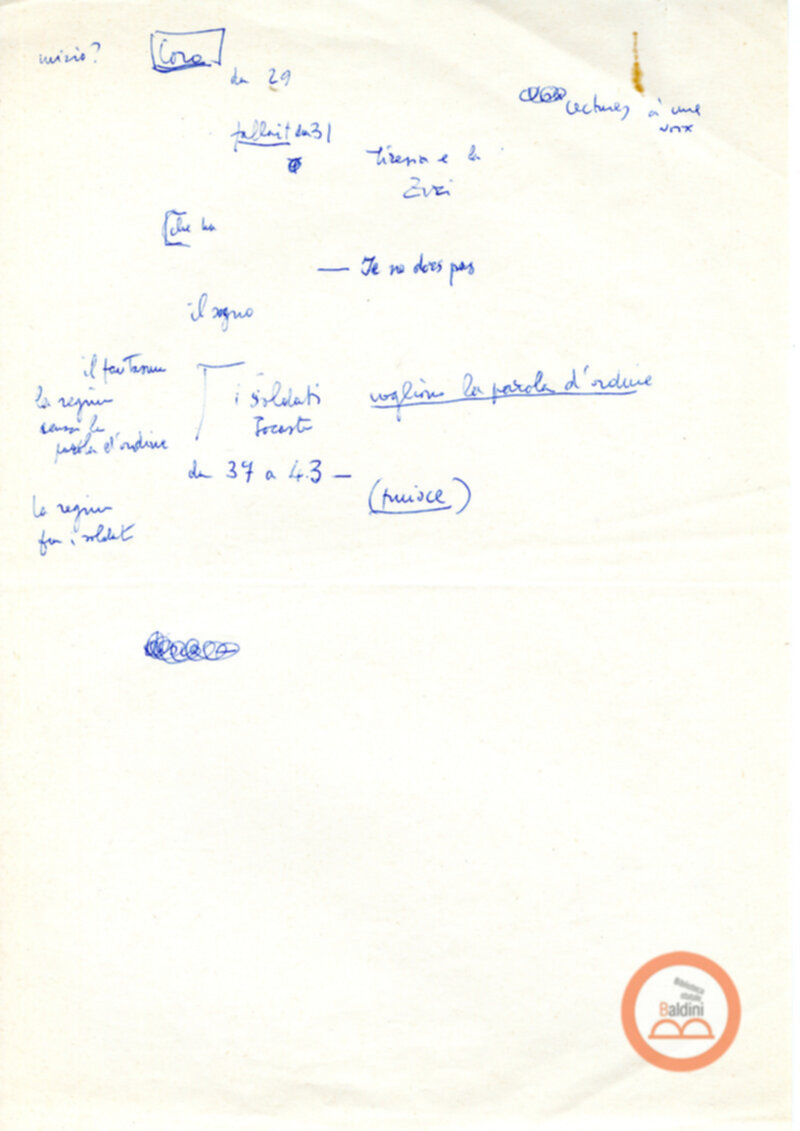 inizio? Coro
da 29
lectures à une
voix
fallait da 31
Tiresia e la
che ha
— Je ne dois pas
il sogno
il fantasma
la regina
senza la
parola d'ordine
i soldati
Jocasta
vogliono la parola d'ordine
da 37 a 43 —
(finisce)
la regina
fra i soldati
Biblioteca
statale
Baldini